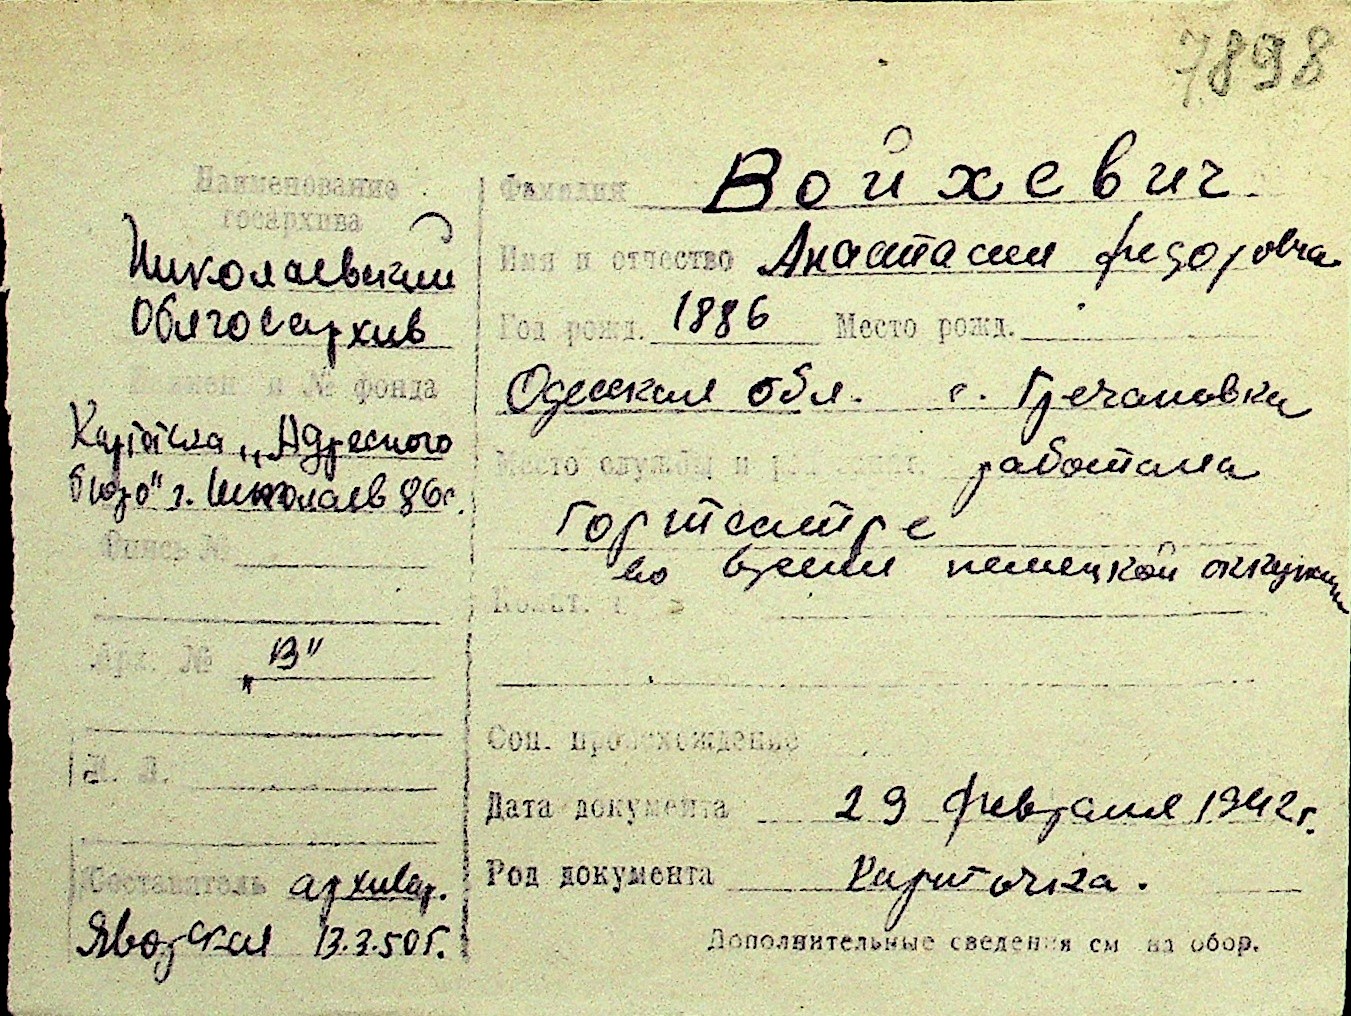 7898
Наименование
госархива
Николаевский
Облгосархив
Наимен и № фонда
Картотека „Адресного
бюро" г. Николаев
Опись №
Арх. № „В"
Л. Л.
Составитель архивар.
Яворская 13.3.50г.
Фамилия Войхевич
Имя и отчество Анастасия Федоровна
Год рожд. 1886 Место рожд.
Одесская обл. с. Гречановка
Место службы и работала
Гортеатре
во время немецкой оккупации
Соц. происхождение
Дата документа 29 февраля 1942г.
Род документа Карточка.
Дополнительные сведения см на обор.